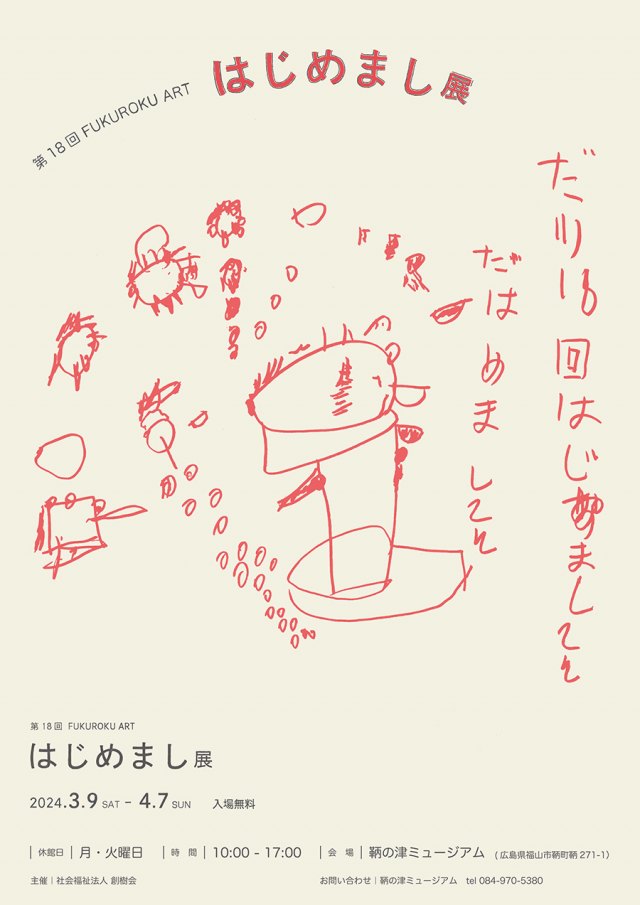 第18回 FUKUROKU ART
はじめまし展
だい18回はじめましてそ
だはめましてそ
第18回 FUKUROKU ART
はじめまし展
2024.3.9 SAT - 4.7 SUN 入場無料
休館日 月・火曜日 時間 10:00 - 17:00 会場 鞆の津ミュージアム (広島県福山市鞆町鞆 271-1)
主催|社会福祉法人 創樹会 お問い合わせ|鞆の津ミュージアム tel 084-970-5380